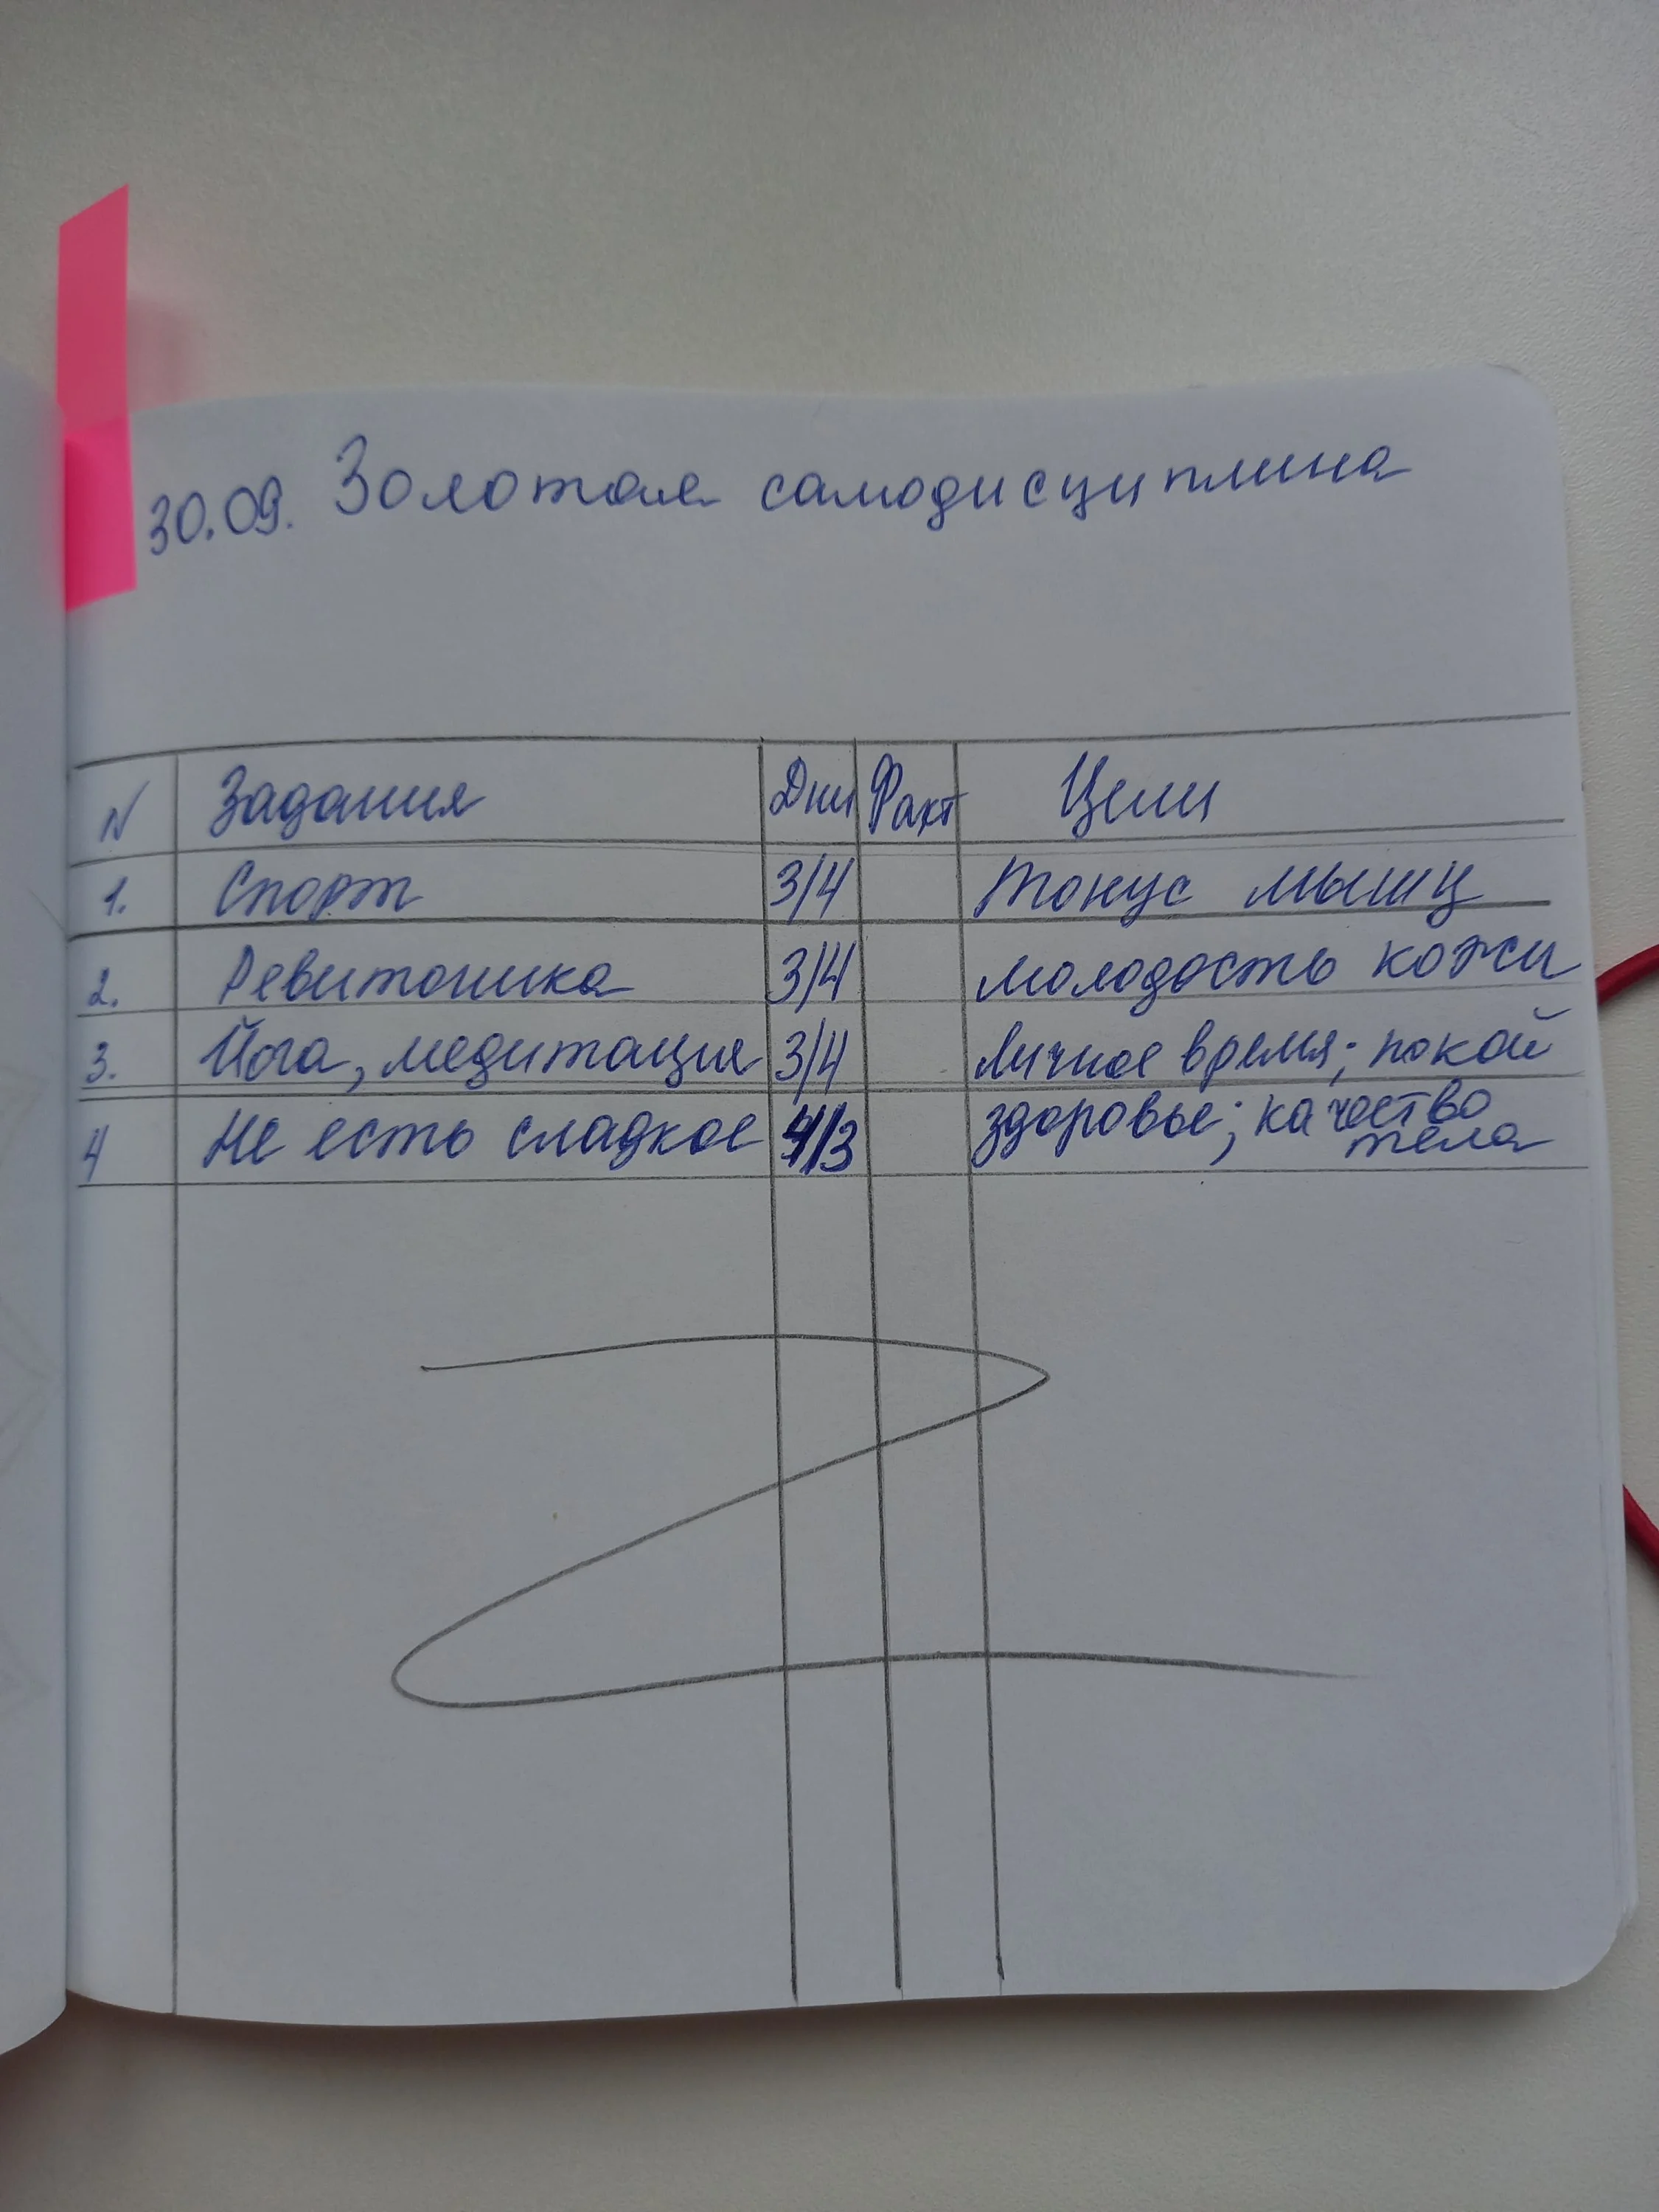 30.09. Золотая самодисциплина
N Задания Дни Факт Цели
1. Спорт 3/4 тонус мышц
2. Ревитоника 3/4 молодость кожи
3. Йога, медитация 3/4 личное время; покой
4 Не есть сладкое 4/3 здоровье; качество
тела